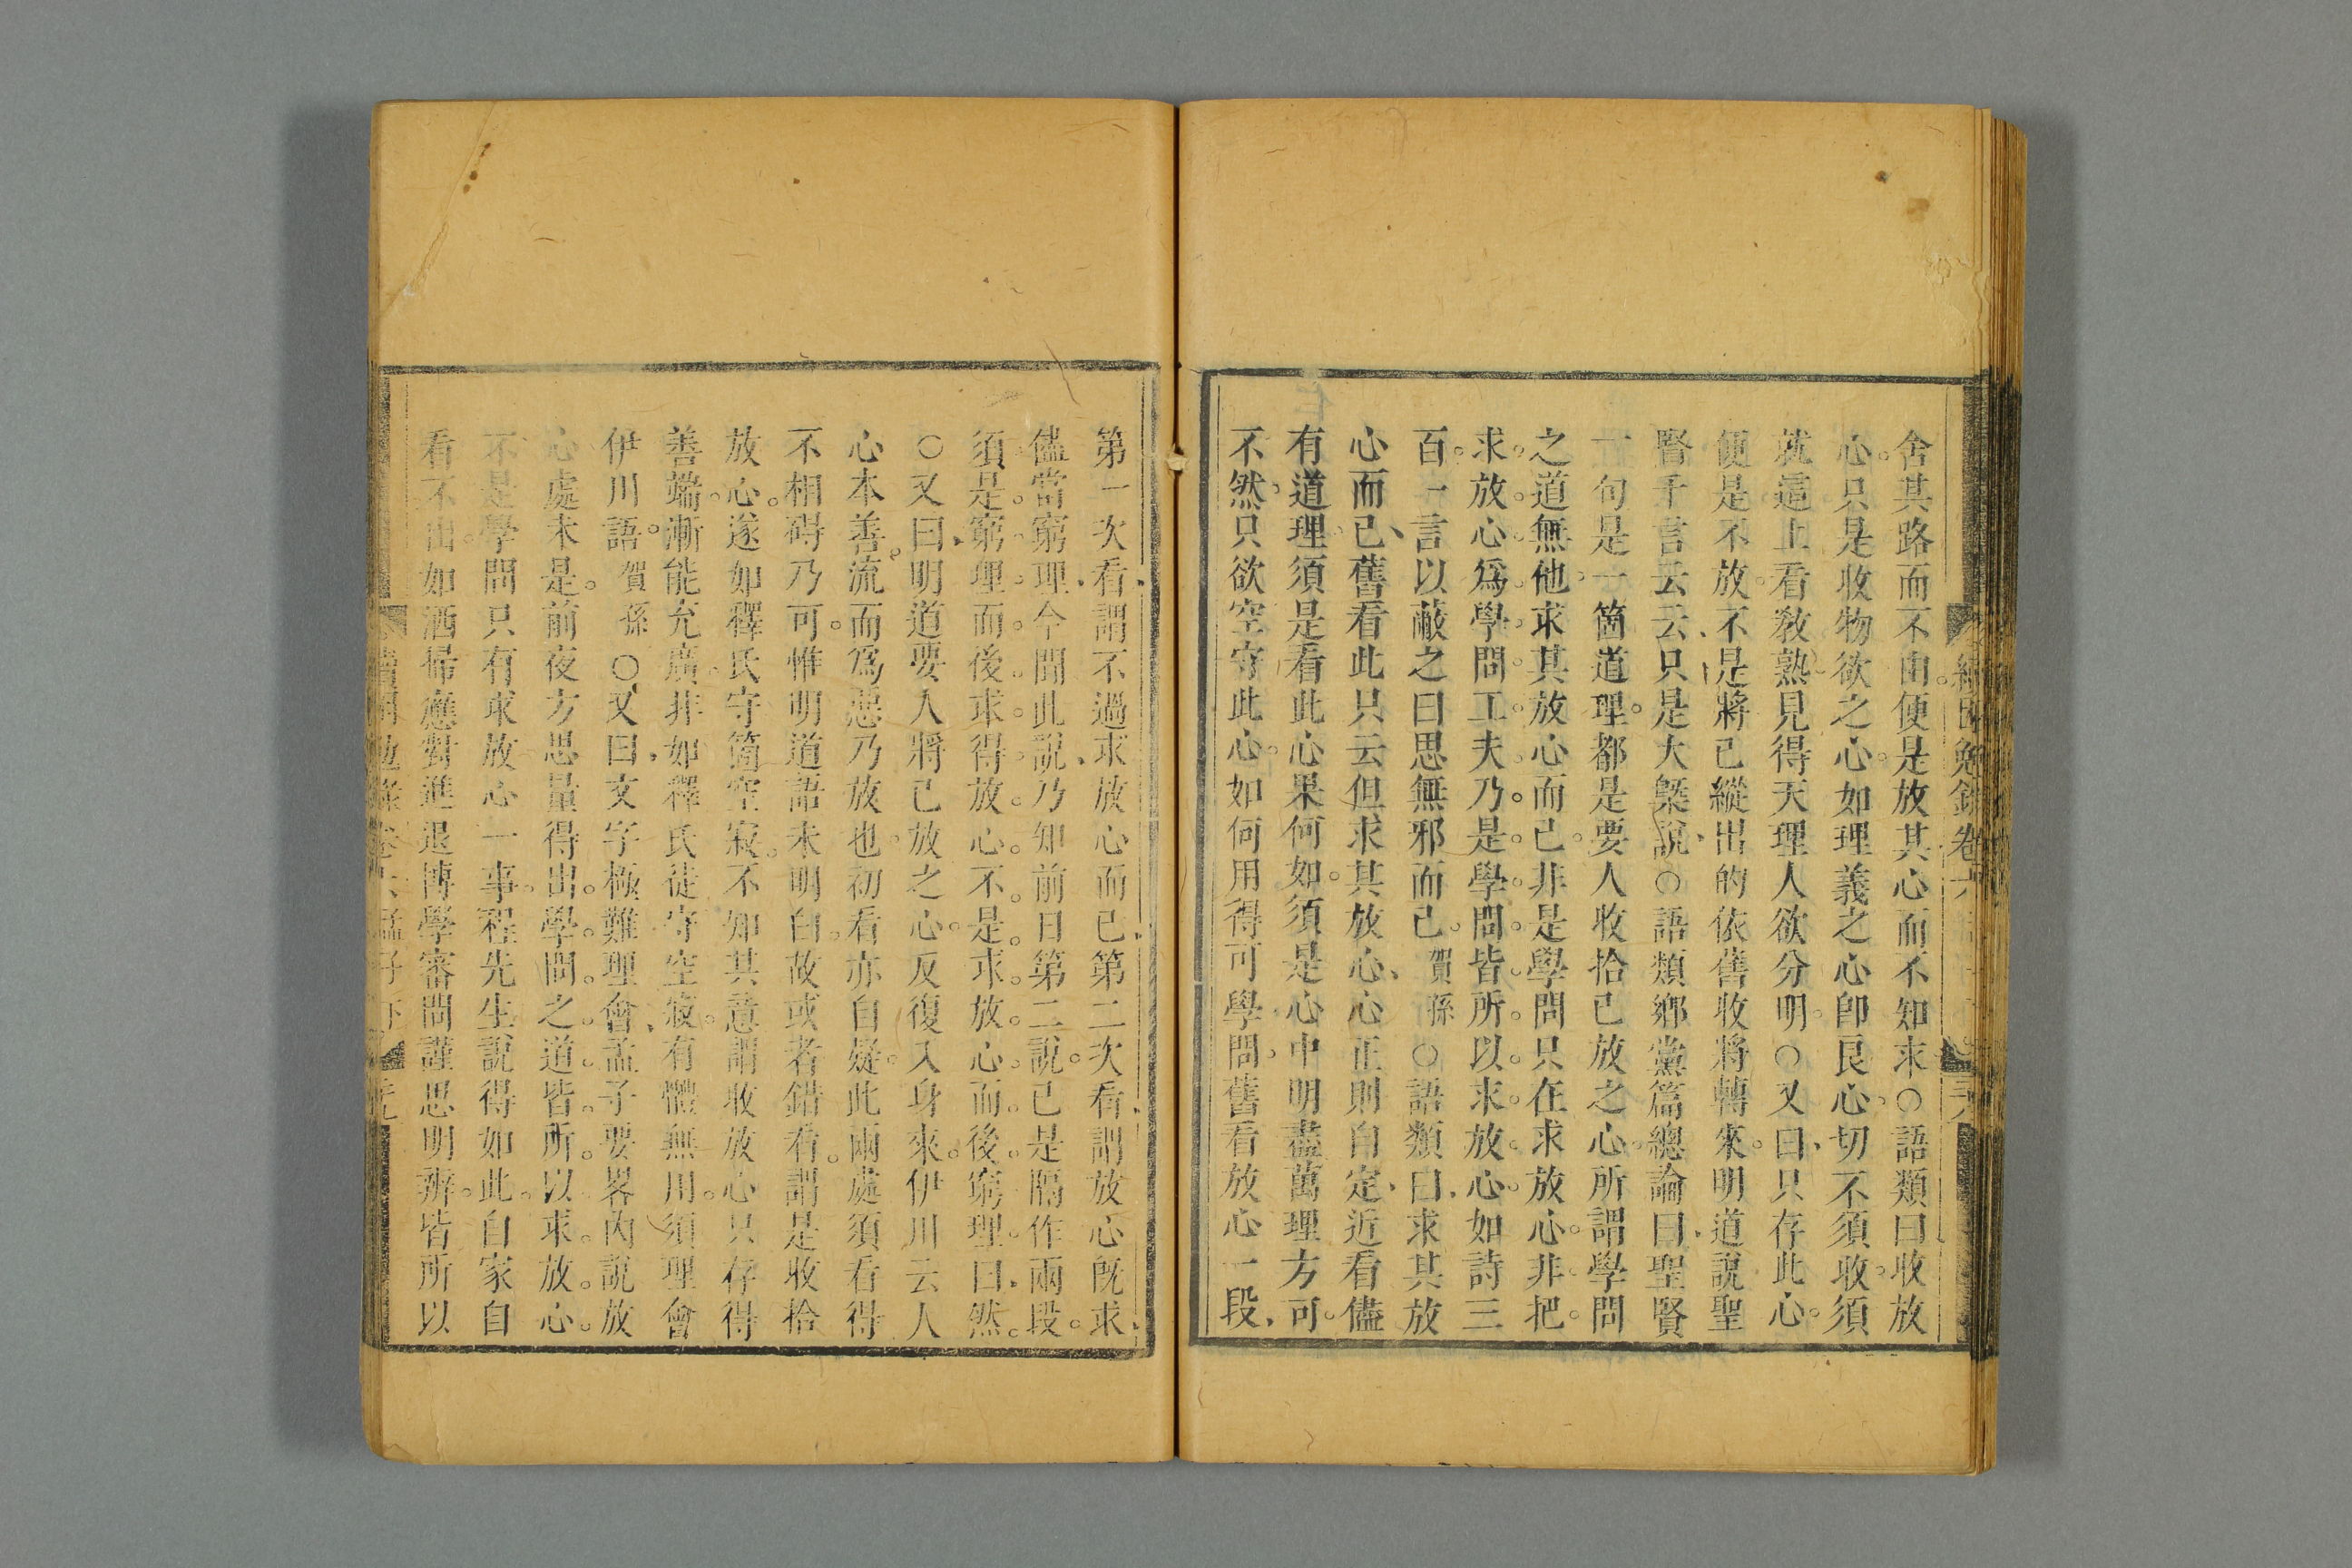 舍其路而不由便是放其心而不知求○語類曰收放
心只是收物欲之心心如理義之心卽良心切不須收須
就這上看教熟見得天理人欲分明○又曰只存此心
便是不放不是將已縱出的依舊收將轉來明道說聖
賢千言云云只是大槩說○語類鄉黨篇總論曰聖賢
一句是一箇道理都是要人收拾已放之心所謂學問
之道無他求其放心而已非是學問只在求放心非把
求放心爲學問工夫乃是學問皆所以求放心如詩三
百一言以蔽之曰思無邪而已賀孫○語類曰求其放
心而已舊看此只云但求其放心心正則自定近看儘
有道理須是看此心果何如須是心中明盡萬理方可
不然只欲空守此心如何用得可學問舊看放心一段
第一次看謂不過求放心而已第二次看謂放心旣求
儘當窮理今聞此說乃知前日第二說已是隔作兩段
須是窮理而後求得放心不是求放心而後窮理曰然
○又曰明道要人將已放之心反復入身來伊川云人
心本善流而爲惡乃放也初看亦自疑此兩處須看得
不相碍乃可惟明道語未明白故或者錯看謂是收拾
放心遂如釋氏守箇空寂不知其意謂收放心只存得
善端漸能充廣非如釋氏徒守空寂有體無用須理會
伊川語賀孫○又曰文字極難理會孟子要畧內說放
心處未是前夜方思量得出學問之道皆所以求放心
不是學問只有求放心一事程先生說得如此自家自
看不出如洒掃應對進退博學審問謹思明辨皆所以